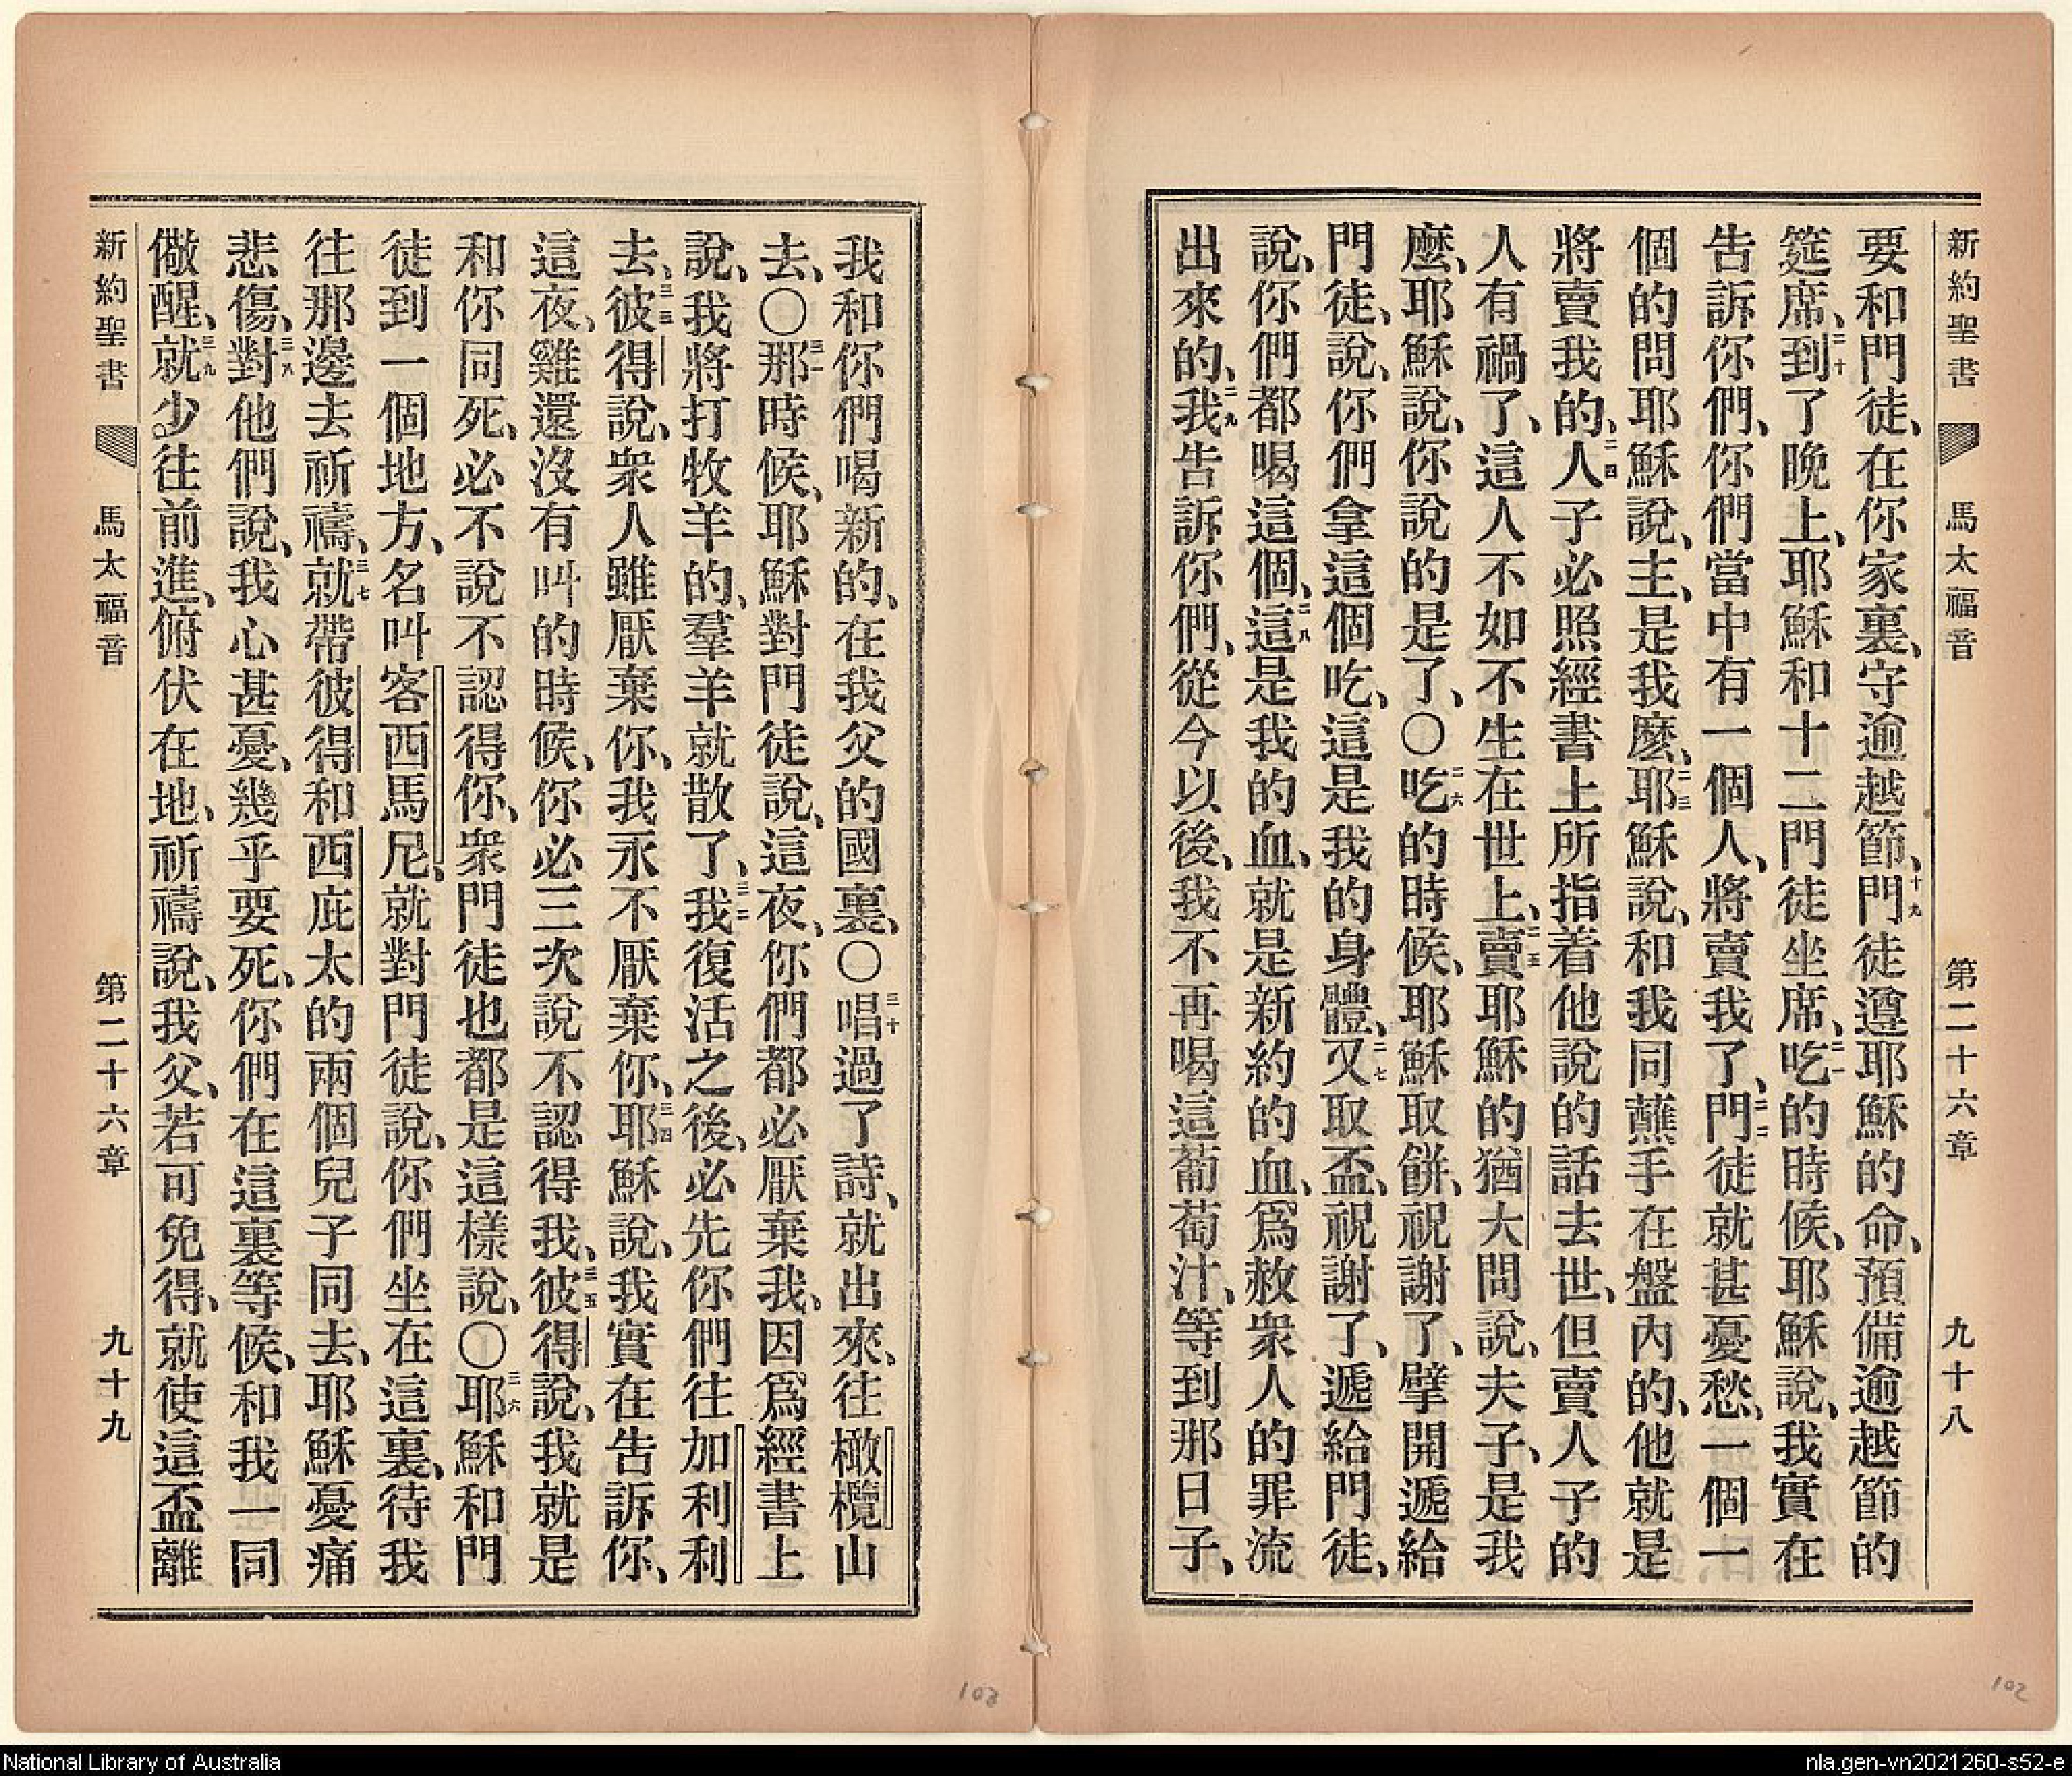 新約聖書 馬太福音 第二十六章 九十八
要和門徒、在你家裏、守逾越節、十九門徒遵耶穌的命、預備逾越節的
筵席、二十到了晚上、耶穌和十二門徒坐席、二一吃的時候、耶穌說、我實在
告訴你們、你們當中有一個人、將賣我了、二二門徒就甚憂愁、一個一
個的問耶穌說、主、是我麽、二三耶穌說、和我同蘸手在盤內的、他就是
將賣我的、二四人子必照經書上所指着他說的話去世、但賣人子的
人有禍了、這人不如不生在世上、二五賣耶穌的猶大問說、夫子、是我
麽、耶穌說、你說的是了、〇二六吃的時候、耶穌取餅、祝謝了、擘開遞給
門徒、說、你們拿這個吃、這是我的身體、二七又取盃、祝謝了、遞給門徒、
說、你們都喝這個、二八這是我的血、就是新約的血、爲赦衆人的罪流
出來的、二九我告訴你們、從今以後、我不再喝這葡萄汁、等到那日子、
我和你們喝新的、在我父的國裏、〇三十唱過了詩、就出來、往橄欖山
去、〇三一那時候、耶穌對門徒說、這夜、你們都必厭棄我、因爲經書上
說、我將打牧羊的、羣羊就散了、三二我復活之後、必先你們往加利利
去、三三彼得說、衆人雖厭棄你、我永不厭棄你、三四耶穌說、我實在告訴你、
這夜、雞還沒有叫的時候、你必三次說不認得我、三五彼得說、我就是
和你同死、必不說不認得你、衆門徒也都是這樣說、〇三六耶穌和門
徒到一個地方、名叫客西馬尼、就對門徒說、你們坐在這裏、待我
往那邊去祈禱、三七就帶彼得和西庇太的兩個兒子同去、耶穌憂痛
悲傷、三八對他們說、我心甚憂、幾乎要死、你們在這裏等候、和我一同
儆醒、三九就少往前進、俯伏在地、祈禱說、我父、若可免得、就使這盃離
新約聖書 馬太福音 第二十六章 九十九
103
102
National Library of Australia
nla.gen-vn2021260-s52-e